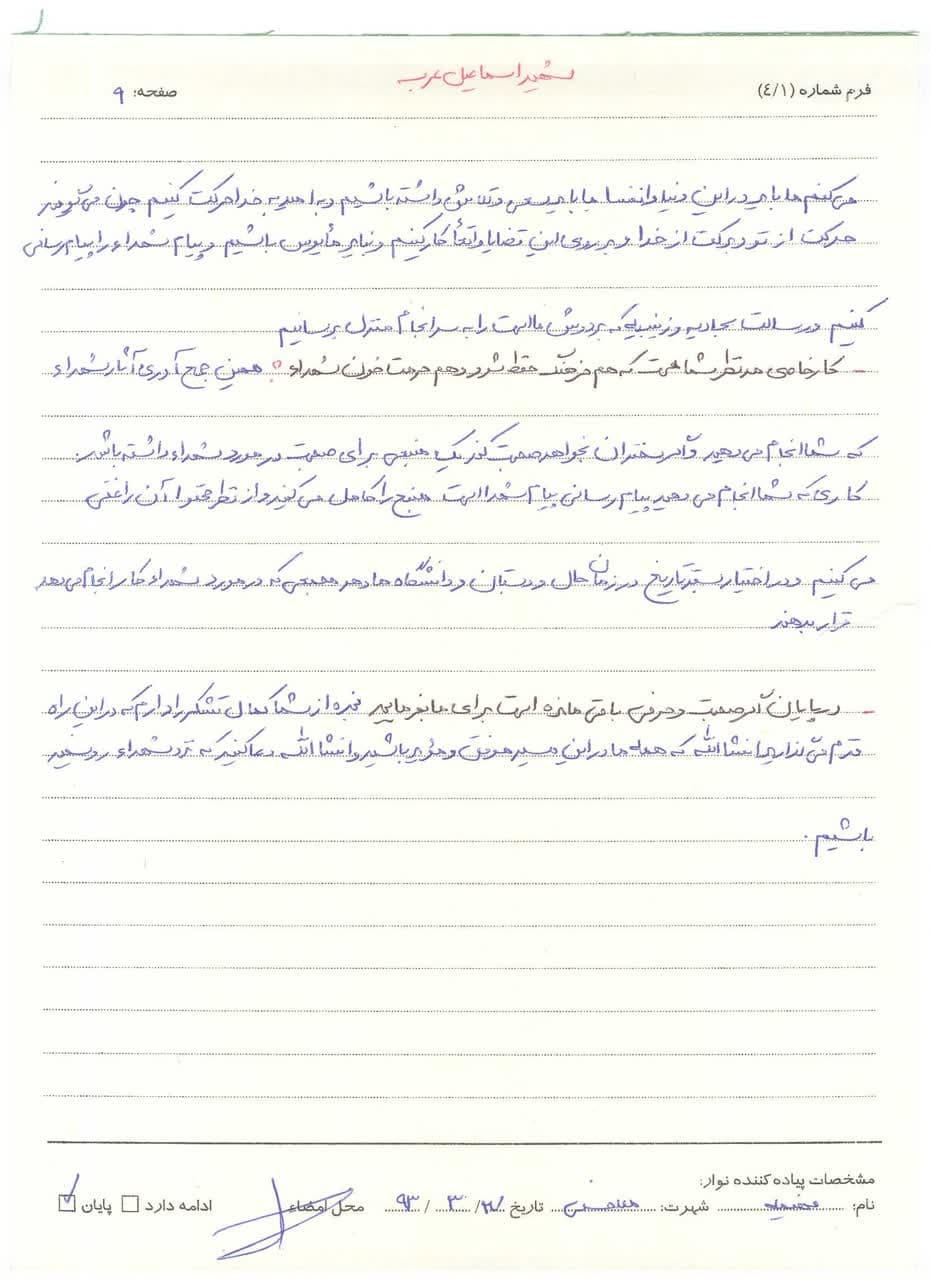 شهید اسماعیل عرب
فرم شماره (٤/١)
صفحه: ۹
می‌کنیم ما باید در این دنیا وانفسا ما باید سعی و تلاش داشته باشیم و با امید به خدا حرکت کنیم چون می‌گویند
حرکت از تو و برکت از خدا و بر روی این قضایا واقعاً کار کنیم و نباید مأیوس باشیم و پیام شهداء را پیام رسانی
کنیم و رسالت سجادیه و زینبیه که بر دوش ما است را به سرانجام منزل برسانیم
- کار خاصی مد نظر شما هست که هم فرهنگ حفظ شود و هم حرمت خون شهداء؟ همین جمع آوری آثار شهداء
که شما انجام می دهید و اگر سخنران بخواهد صحبت کند یک منبعی برای صحبت در مورد شهداء داشته باشد.
کاری که شما انجام می دهید پیام رسانی پیام شهدا است منبع را کامل می کنید و از نظر محتوا آن را غنی
می کنیم و در اختیار تاریخ در زمان حال و دبستان و دانشگاه ها و هر مجمعی که در مورد شهداء کار انجام می دهد
قرار بدهند
- در پایان اگر صحبت و حرفی باقی مانده است برای ما بفرمایید از شما کمال تشکر را دارم که در این راه
قدم می گذارید انشا الله که همه ما در این مسیر موفق و مؤید باشید و انشا الله دعا کنید که نزد شهداء رو سفید
باشیم.
مشخصات پیاده کننده نوار:
نام: شهرت: تاریخ / ۳ / ۹۳ محل امضاء ادامه دارد پایان